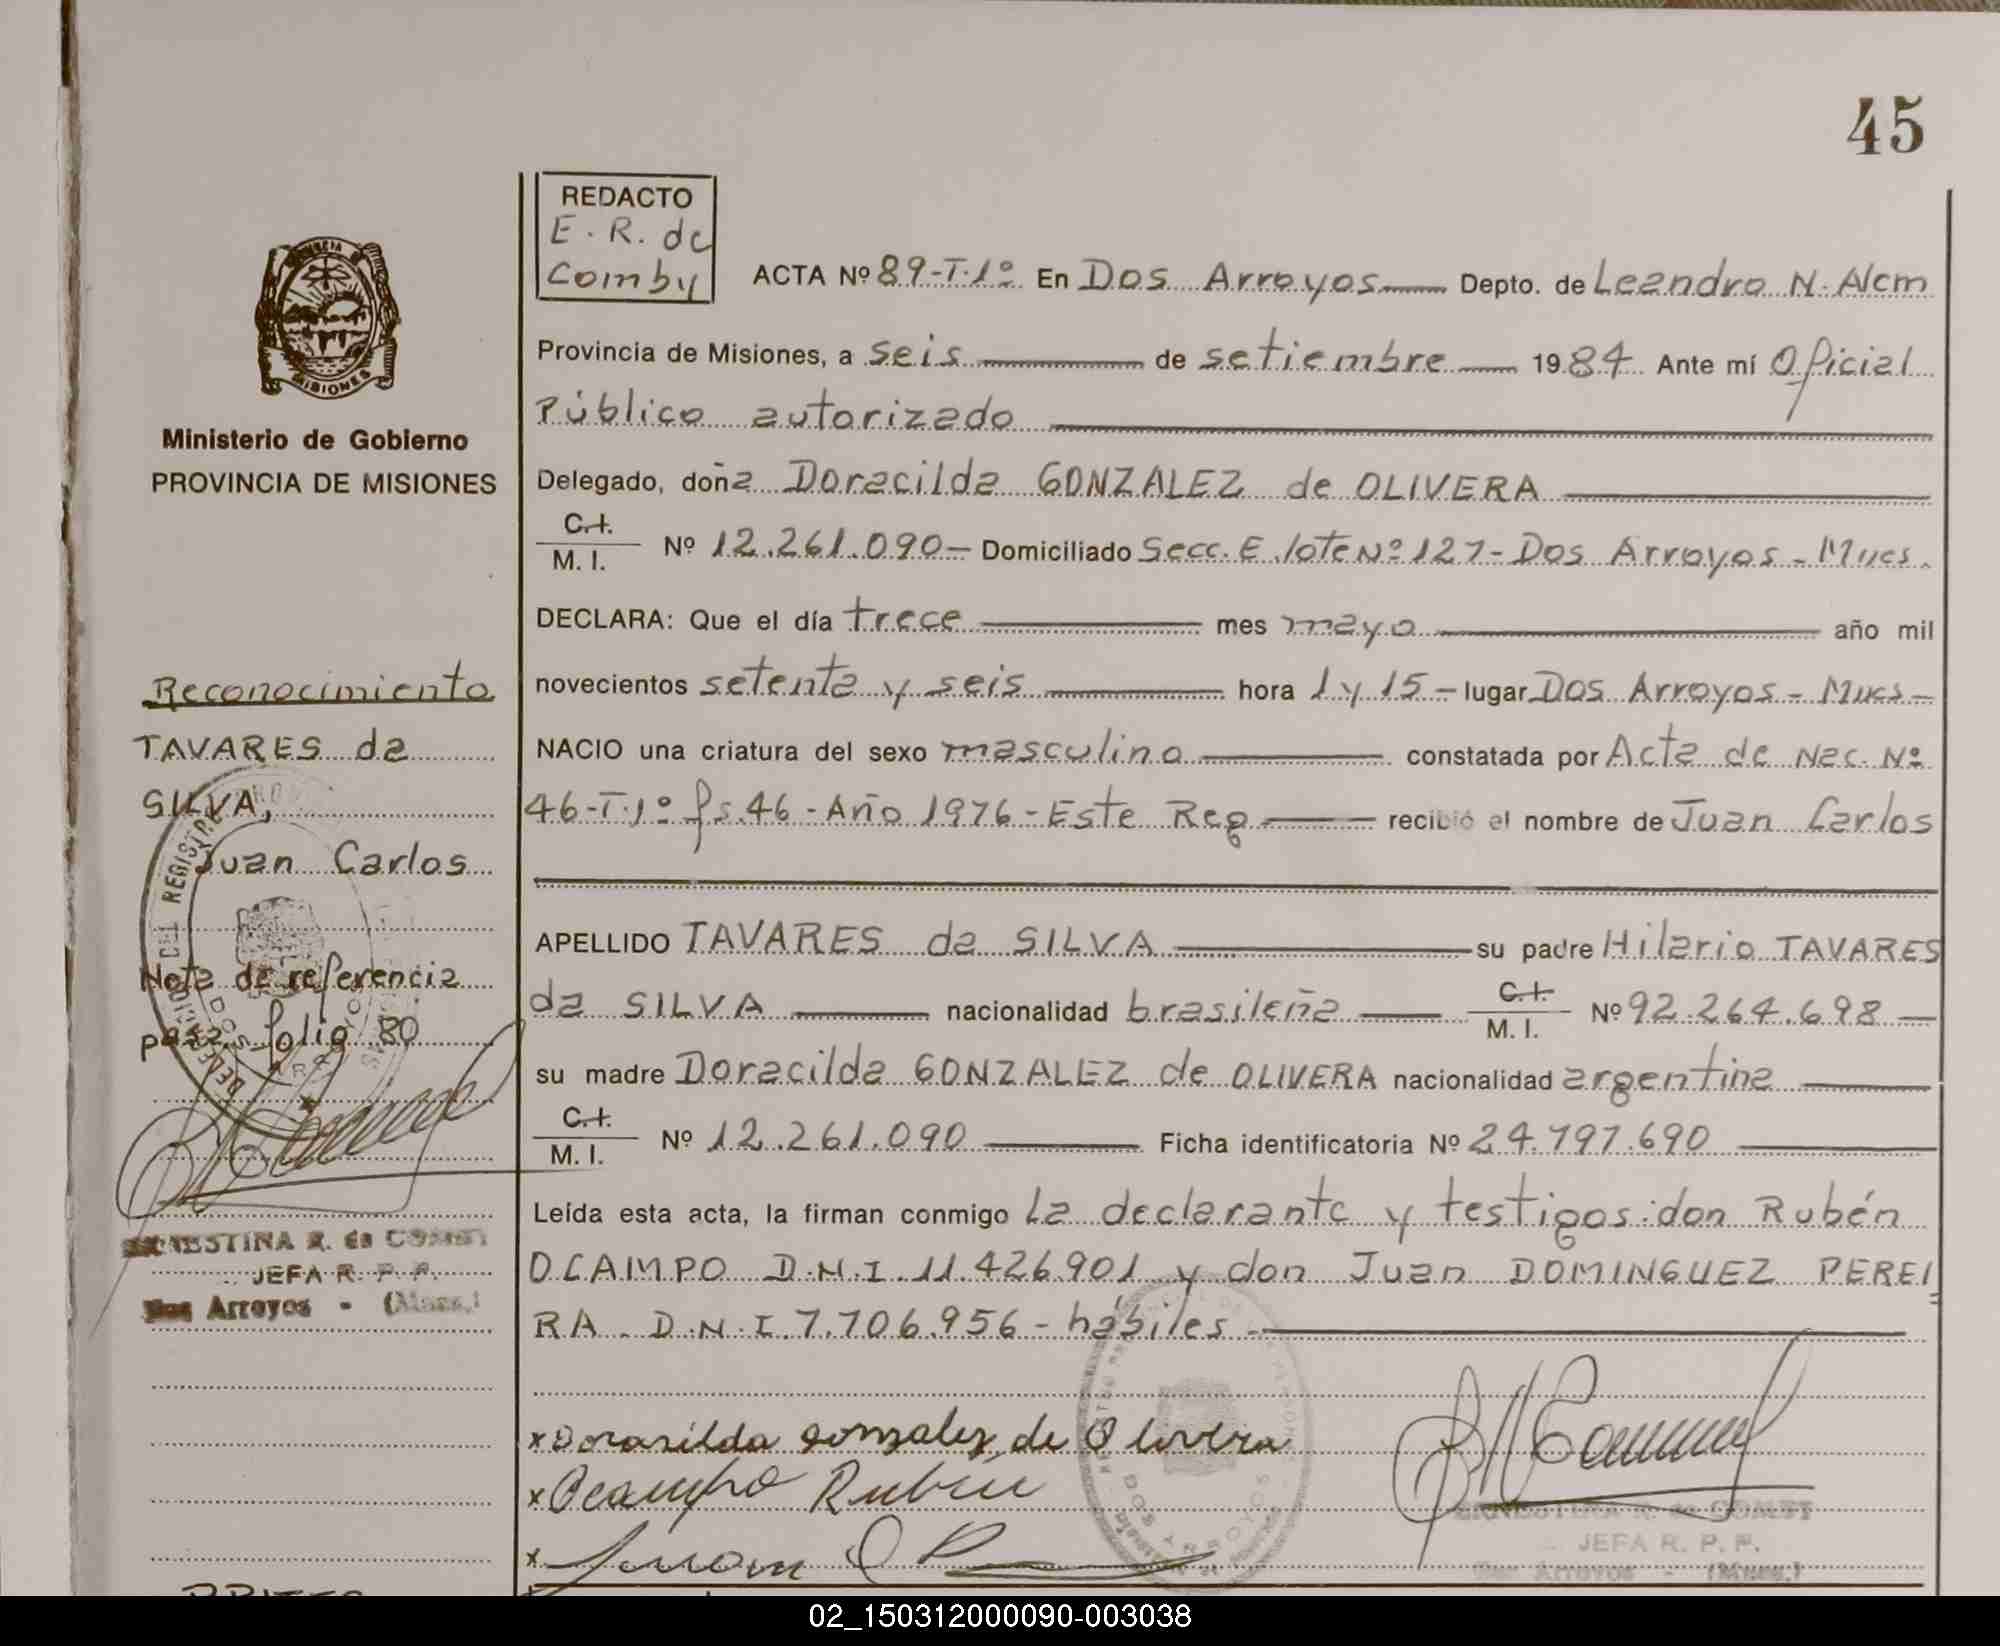 45
REDACTO
E. R. de
Comby
ACTA Nº 89-T.1º En Dos Arroyos Depto. de Leandro N. Alem
Provincia de Misiones, a seis de setiembre 1984 Ante mí Oficial
Público autorizado
Delegado, doña Doracilda GONZALEZ de OLIVERA
C.I.
M. I. Nº 12.261.090- Domiciliado Secc. E. lote Nº 127- Dos Arroyos - Mnes.
DECLARA: Que el día trece mes mayo año mil
novecientos setenta y seis hora 1 y 15 - lugar Dos Arroyos - Mnes -
NACIO una criatura del sexo masculino constatada por Acta de Nac. Nº
46-T.1º fs. 46 - Año 1976 - Este Reg recibió el nombre de Juan Carlos
APELLIDO TAVARES da SILVA su padre Hilario TAVARES
da SILVA nacionalidad brasileña C.I. M. I. Nº 92.264.698
su madre Doracilda GONZALEZ de OLIVERA nacionalidad argentina
C.I.
M. I. Nº 12.261.090 Ficha identificatoria Nº 24.797.690
Leída esta acta, la firman conmigo la declarante y testigos: don Rubén
OCAMPO D.N.I. 11.426.901 y don Juan DOMINGUEZ PEREI
RA - D.N.I. 7.706.956 - hábiles -
x Dorasilda gonzalez de Olivera
x Ocampo Rubén
x Juan
ERNESTINA R. de COMBY
JEFA R. P. P.
Dos Arroyos - (Mnes.)
MISIONES
Ministerio de Gobierno
PROVINCIA DE MISIONES
Reconocimiento
TAVARES da
SILVA,
Juan Carlos
Nota de referencia
pasa folio 80
ERNESTINA R. de COMBY
JEFA R. P. P.
Dos Arroyos - (Mnes.)
02_150312000090-003038